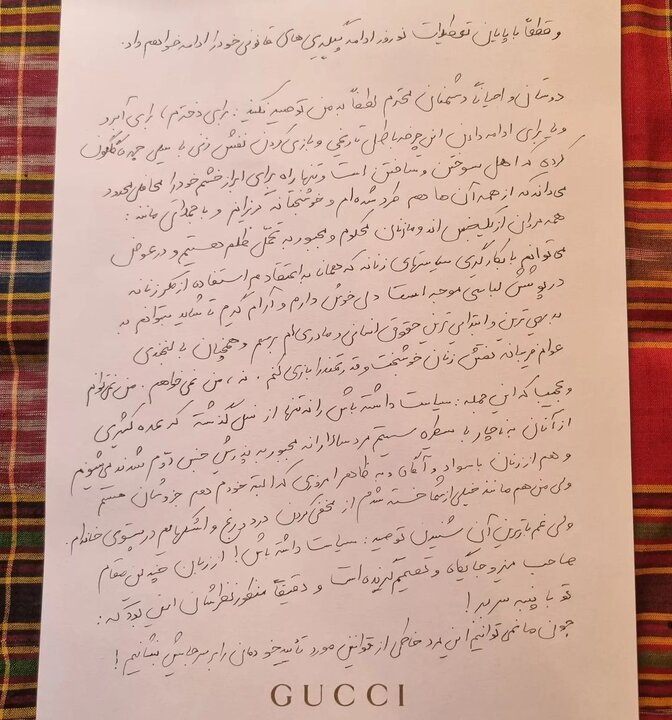 و قطعاً با پایان تعطیلات نوروز ادامه پیگیری‌های قانونی خود را ادامه خواهم داد.
دوستان و احیاناً دشمنان محترم لطفاً به من توصیه نکنید: برای دخترم، برای آبرو
و یا برای ادامه دادن این چرخه باطل تاریخی و بازی کردن نقش زنی با سیلی چهره گلگون
کردی که اهل سوختن و ساختن است و تنها راه برای ابراز خشم خود را محافل محدود
می‌داند که از همه آن‌ها هم طرد شده‌ام و خوشبختانه گریزانم و با جملاتی مانند:
همه مردان از یک جنس اند و ما زنان محکوم و مجبور به تحمل ظلم هستیم و در عوض
می‌توانم با بکارگیری سیاستهای زنانه که همانا به اعتقادم استفاده از مکر زنانه
در پوشش لباسی موجه است دلی خوش دارم و آرام گیرم تا شاید بتوانم به
بدیهی‌ترین و ابتدایی‌ترین حقوق انسانی و مادری‌ام برسم و همچنان با لبخندی
عوام فریبانه نقش زنان خوشبخت و قدرتمند را بازی کنم. نه، من نمی‌خواهم. من نمی‌توانم
و عجیبا که این جمله: سیاست داشته باش را نه تنها از نسل گذشته که عده کثیری
از آنان به ناچار با سیطره سیستم مرد سالارانه مجبور به پذیرش جنس دوم شدند می‌شنوم
و هم از زنان با سواد و آگاه و به ظاهر امروزی که البته خودم هم جزوشان هستم
ولی من هم مانند خیلی از شما خسته شدم از مخفی کردن درد و رنج و اشکهایم در پستوی خانه‌ام.
ولی غم بارترین آن شنیدن توصیه: سیاست داشته باش! از زبان چندین مقام
صاحب میز و جایگاه و تصمیم گیرنده است و دقیقاً منظور نظرشان این بود که:
تو با پنبه سر ببر!
چون ما نمی‌توانیم این مرد خاطی از قوانین مورد تأیید خودمان را بر سر جایش بنشانیم!
GUCCI